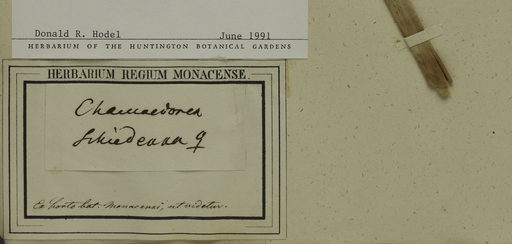 Donald R. Hodel June 1991
HERBARIUM OF THE HUNTINGTON BOTANICAL GARDENS
HERBARIUM REGIUM MONACENSE.
Chamaedorea
Schiedeana ♀
Ex horto bot. Monacensi, ut videtur.